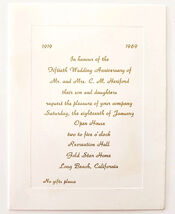 1919 1969
In honour of the
Fiftieth Wedding Anniversary of
Mr. and Mrs. C. M. Hertford
their son and daughters
request the pleasure of your company
Saturday, the eighteenth of January
Open House
two to five o'clock
Recreation Hall
Gold Star Home
Long Beach, California
No gifts please